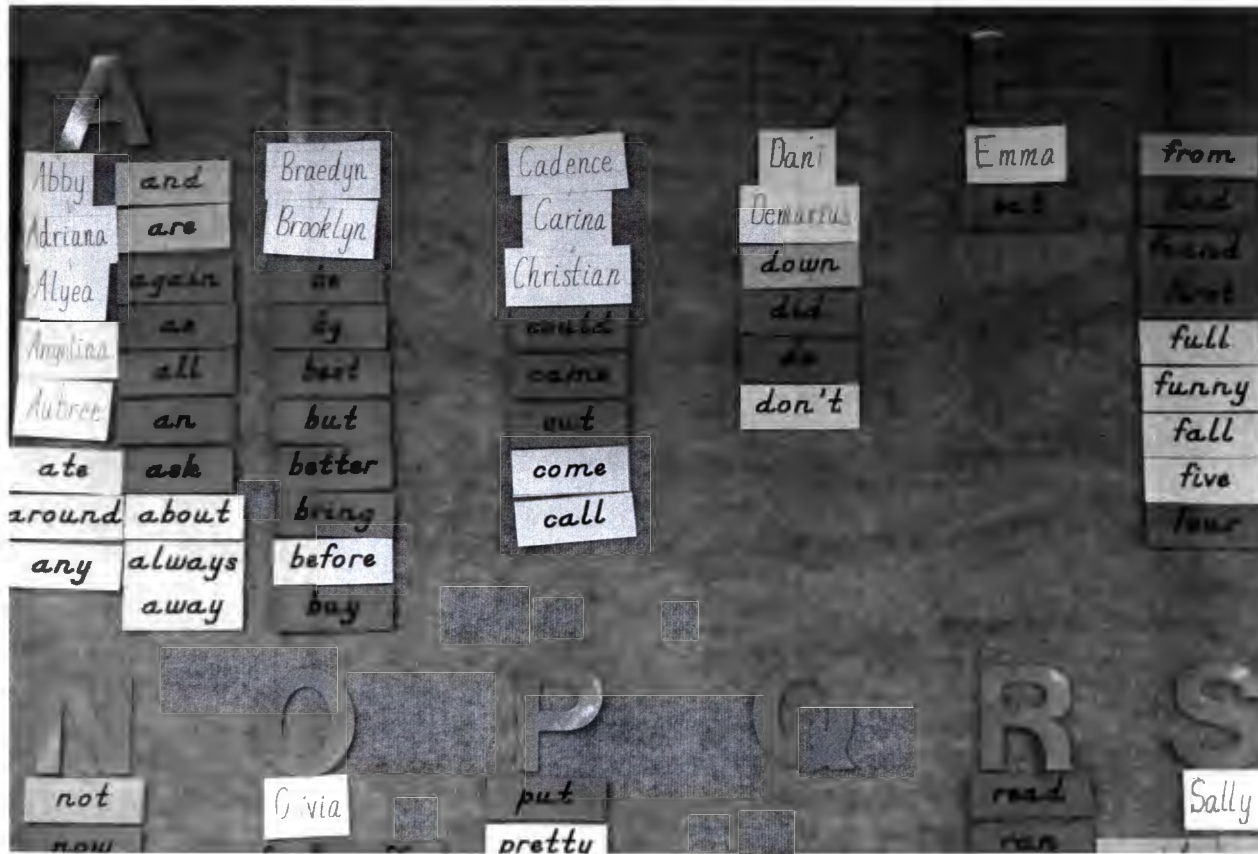 A
Abby
Adriana
Alyea
Angelina
Aubree
ate
around
any
and
are
again
as
all
an
ask
about
always
away
Braedyn
Brooklyn
by
best
but
better
bring
before
buy
Cadence
Carina
Christian
could
came
cut
come
call
Dani
Demarius
down
did
do
don't
E
Emma
eat
from
find
found
first
full
funny
fall
five
four
N
not
now
O
Olivia
P
put
pretty
Q
R
read
ran
S
Sally